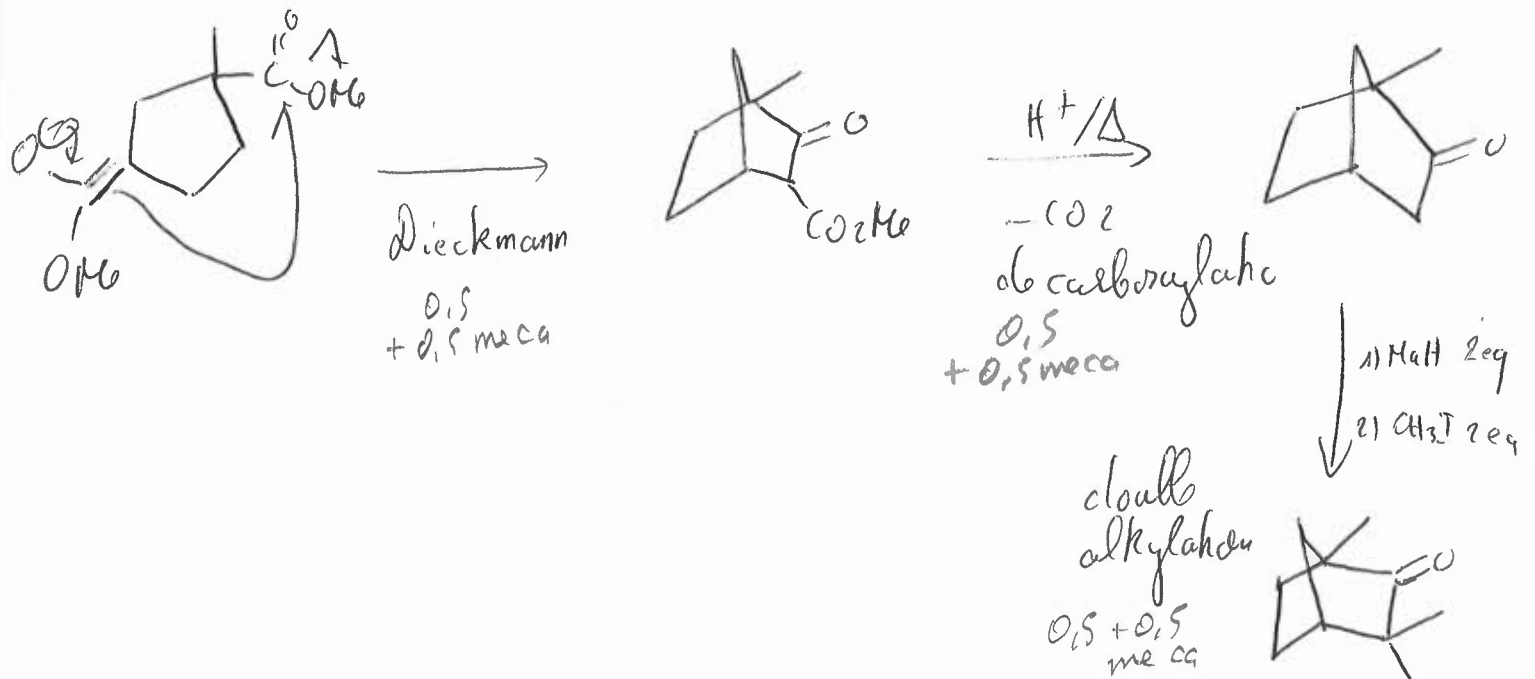 O
C
OMe
OMe
Dieckmann
0,5
+ 0,5 meca
O
CO2Me
H+/Δ
- CO2
decarboxylatio
0,5
+ 0,5 meca
O
1) NaH 2eq
2) CH3I 2eq
double
alkylation
0,5 + 0,5
meca
O